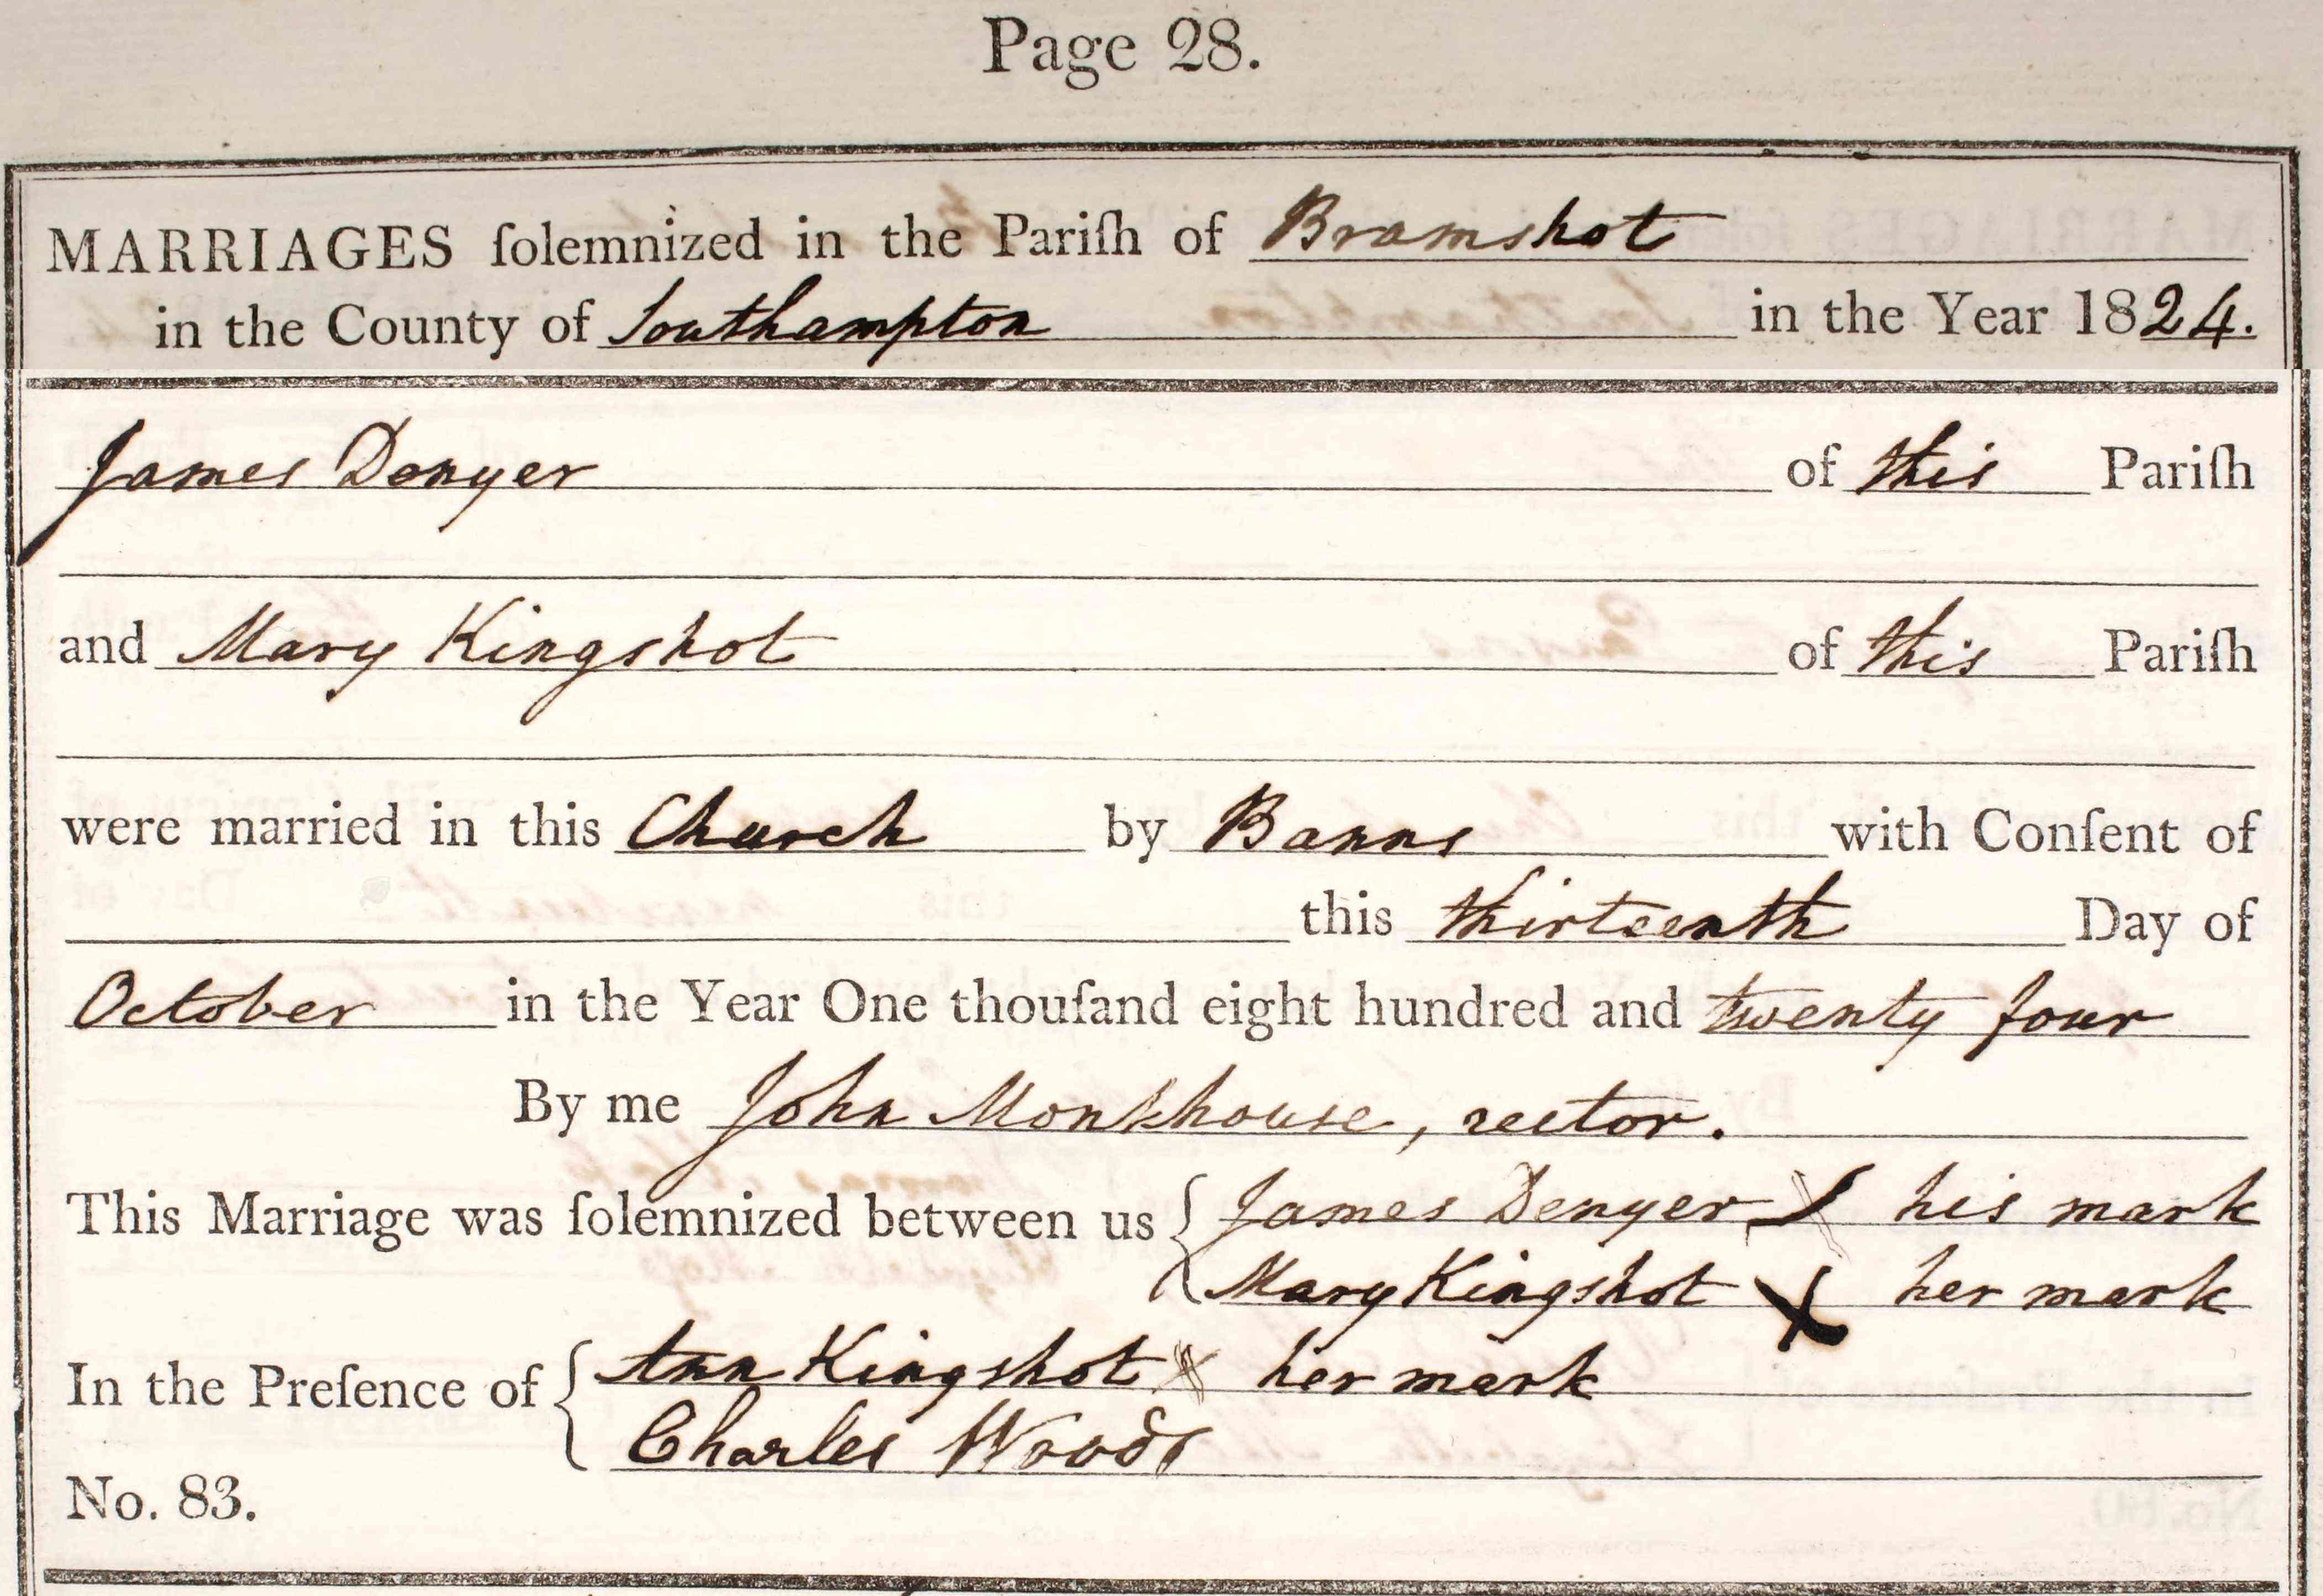 Page 28.
MARRIAGES ſolemnized in the Pariſh of Bramshot
in the County of Southampton in the Year 1824.
James Denyer of this Pariſh
and Mary Kingshot of this Pariſh
were married in this Church by Banns with Conſent of
this thirteenth Day of
October in the Year One thouſand eight hundred and twenty four
By me John Monkhouse, rector.
This Marriage was ſolemnized between us { James Denyer X his mark
Mary Kingshot X her mark
In the Preſence of { Ann Kingshot X her mark
Charles Woods
No. 83.